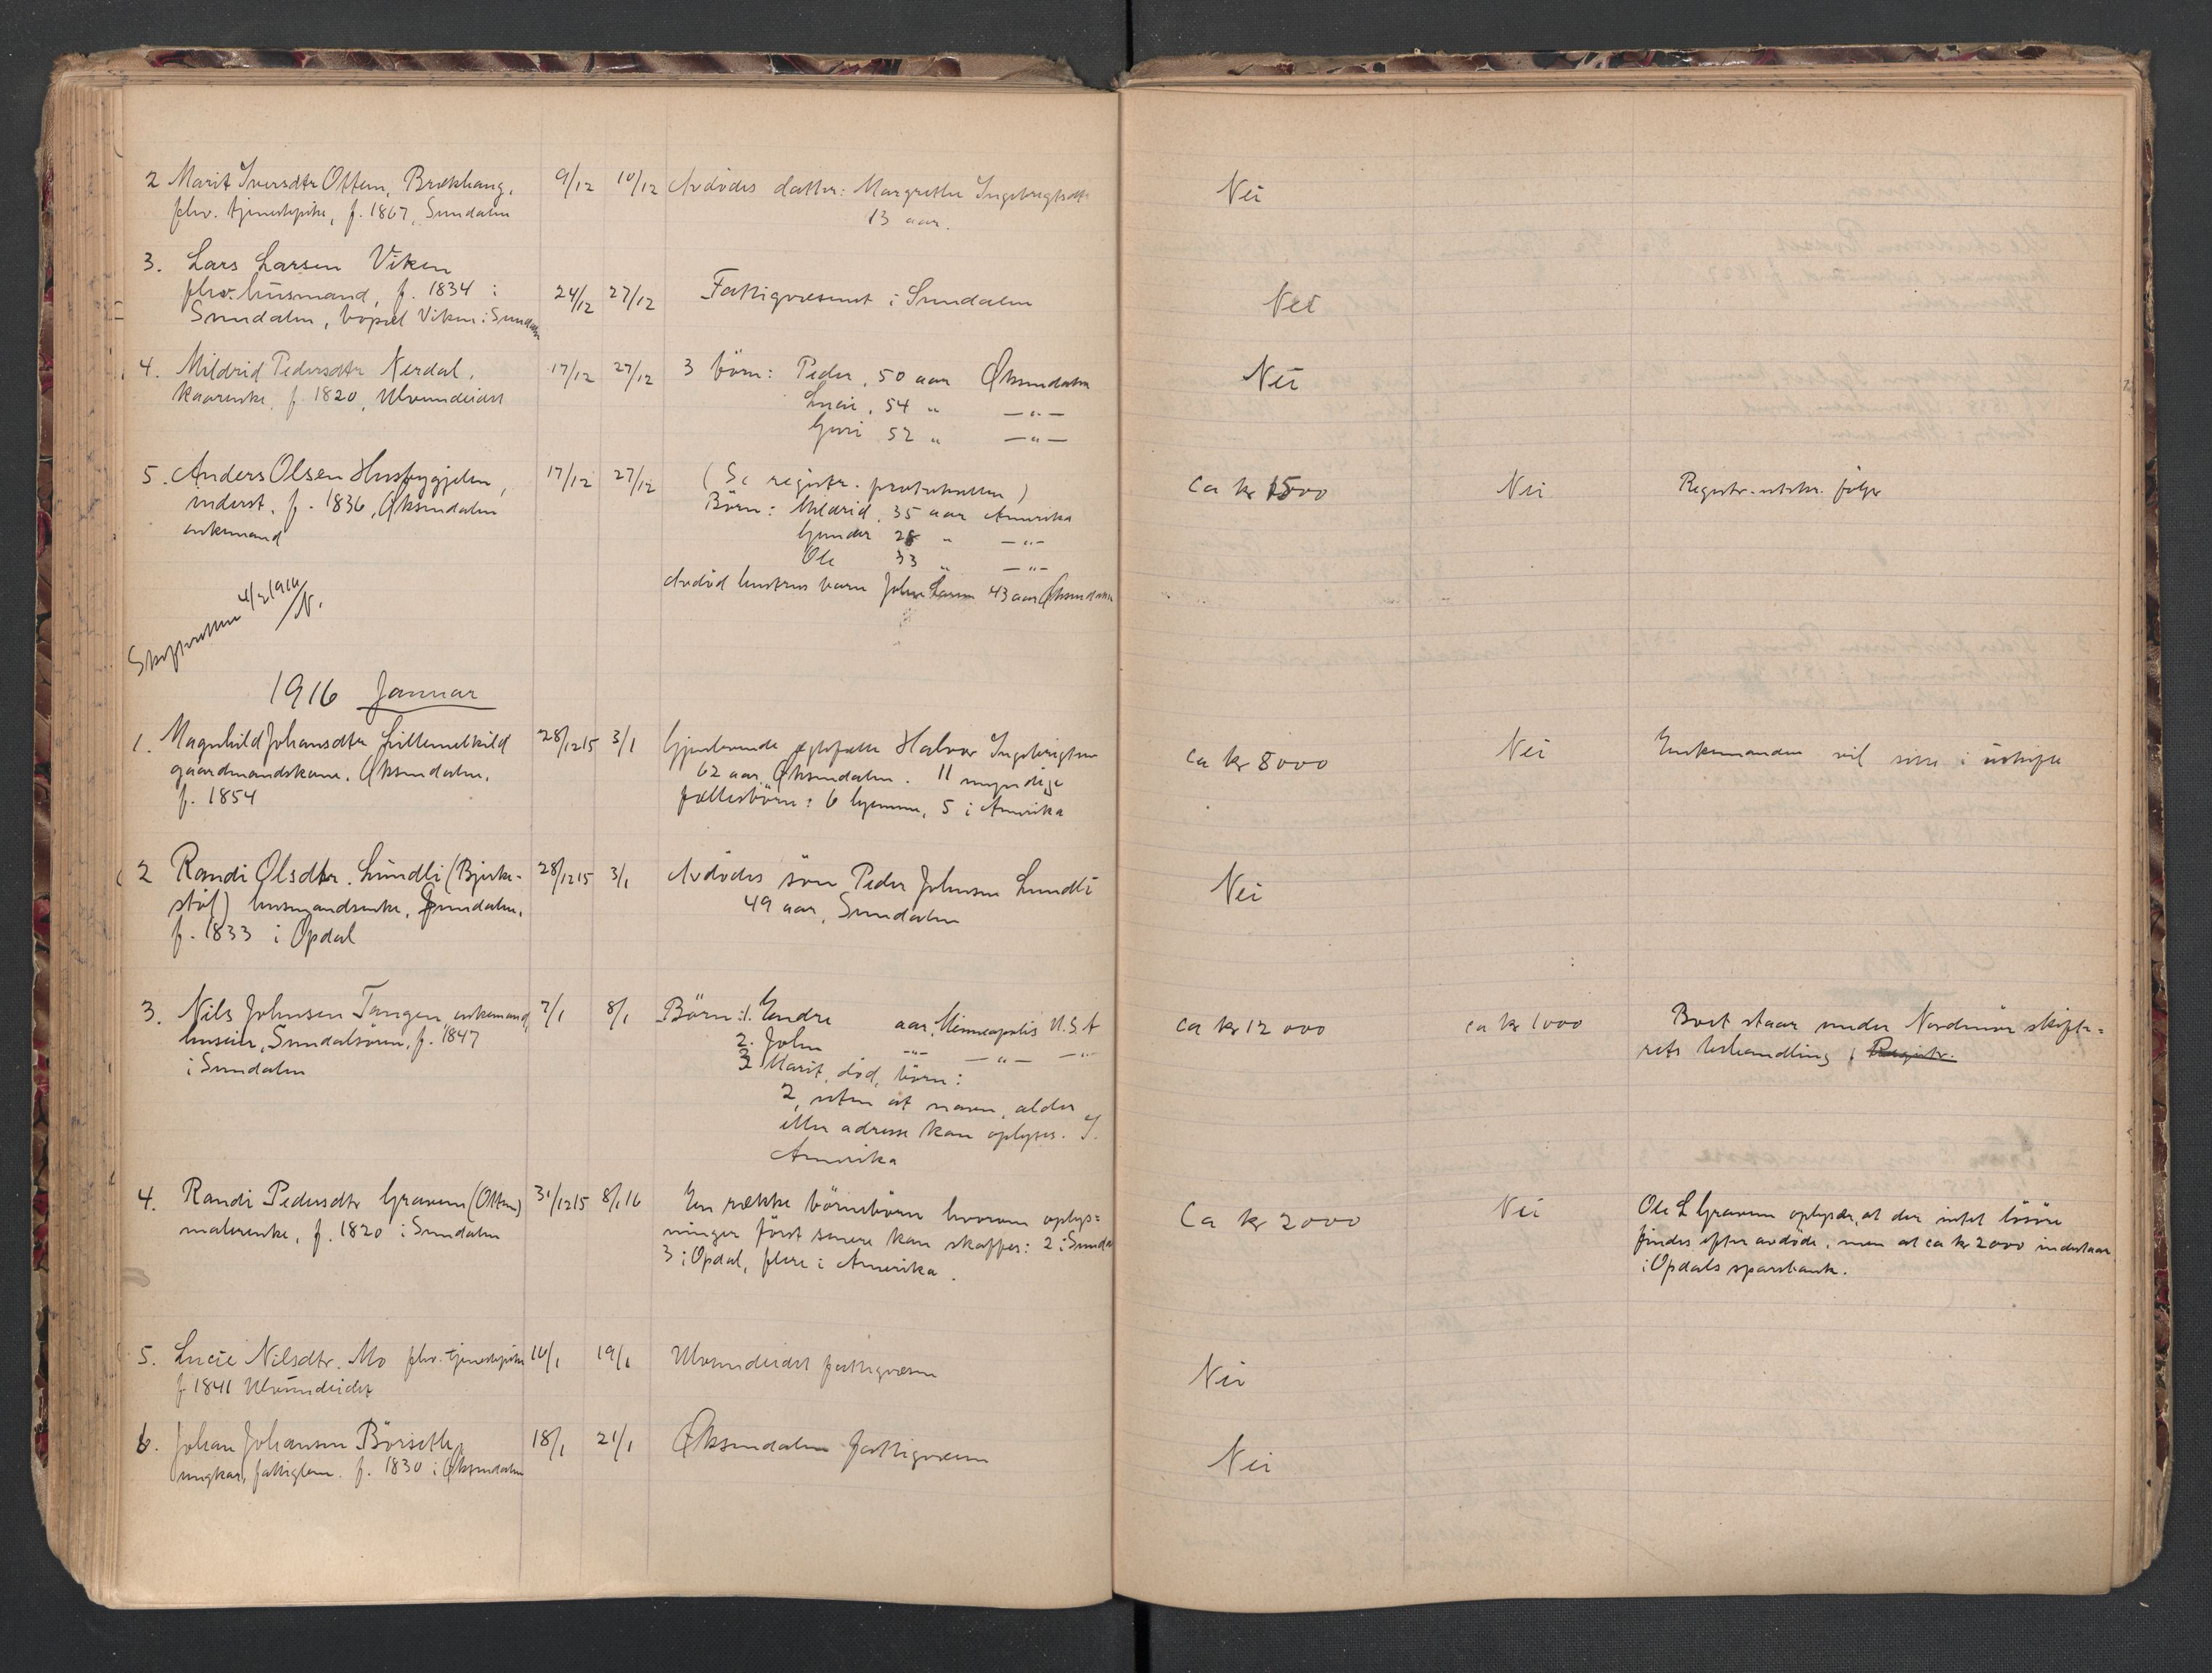 2 Marit Iversdtr Ottem, Brækhaug, 9/12 10/12 Avdödes datter: Margrethe Ingebrigtsdtr Nei
fhv. tjenestepike, f. 1867, Sundalen 13 aar.
3. Lars Larsen Viken
fhv. husmand, f. 1834 i 24/12 27/12 Fattigvæsenet i Sundalen Nei
Sundalen, bopæl Viken i Sundalen
4. Mildrid Pedersdtr Nerdal, 17/12 27/12 3 börn: Peder, 50 aar Øksendalen Nei
Kaarenke, f. 1820, Ulvundeidet Lucie, 54 " —"—
Guri 52 " —"—
5. Anders Olsen Husbyggjelen, 17/12 27/12 (Se registr. protokollen) ca kr 1500 Nei Registr. utskr. følger
inderst, f. 1836, Øksendalen Börn: Mildrid, 35 aar Amerika
enkemand Gunder 28 " —"—
Ole 33 " —"—
Avdöd hustrus barn John Larsen 43 aar Øksendalen
Skifteretten 4/2 1916
N.
1916 Januar
1. Magnhild Johansdtr Littemelkild 28/12 15 3/1 Gjenlevende egtefælle Halvor Ingebrigtsen ca kr 8000 Nei Enkemanden vil sitte i uskifte
gaardmandskone, Øksendalen, 62 aar, Øksendalen. 11 myndige
f. 1854 fællesbörn: 6 hjemme, 5 i Amerika
2 Randi Olsdtr. Lundli (Bjerke- 28/12 15 3/1 Avdödes sön Peder Johnsen Lundli Nei
stöl) husmandsenke, Sundalen, 49 aar, Sundalen
f. 1833 i Opdal
3. Nils Johnsen Tangen, enkemand, 7/1 8/1 Börn: 1. Endre aar, Minneapolis U.S.A ca kr 12 000 ca kr 1000 Boet staar under Nordmör skifte-
huseier, Sundalsören, f. 1847 2. John —"— —"— —"— rets behandling, Registr.
i Sundalen 3 Marit, död, börn:
2, uten at navn, alder
eller adresse kan oplyses. I
Amerika
4. Randi Pedersdtr Gravem (Ottem) 31/12 15 8/1 16 En række börnebörn hvorom oplys- Ca kr 2000 Nei Ole L Gravem oplyser, at der intet lösöre
malerenke, f. 1820 i Sundalen ninger först senere kan skaffes: 2 i Sundal findes efter avdöde, men at ca kr 2000 indestaar
3 i Opdal, flere i Amerika. i Opdals sparebank.
5. Lucie Nilsdtr. Mo fhv. tjenestepike 10/1 19/1 Ulvundeidet fattigvæsen Nei
f 1841 Ulvundeidet
6. Johan Johansen Börseth, 18/1 21/1 Øksendalen fattigvæsen Nei
ungkar, fattiglem. f. 1830 i Øksendalen